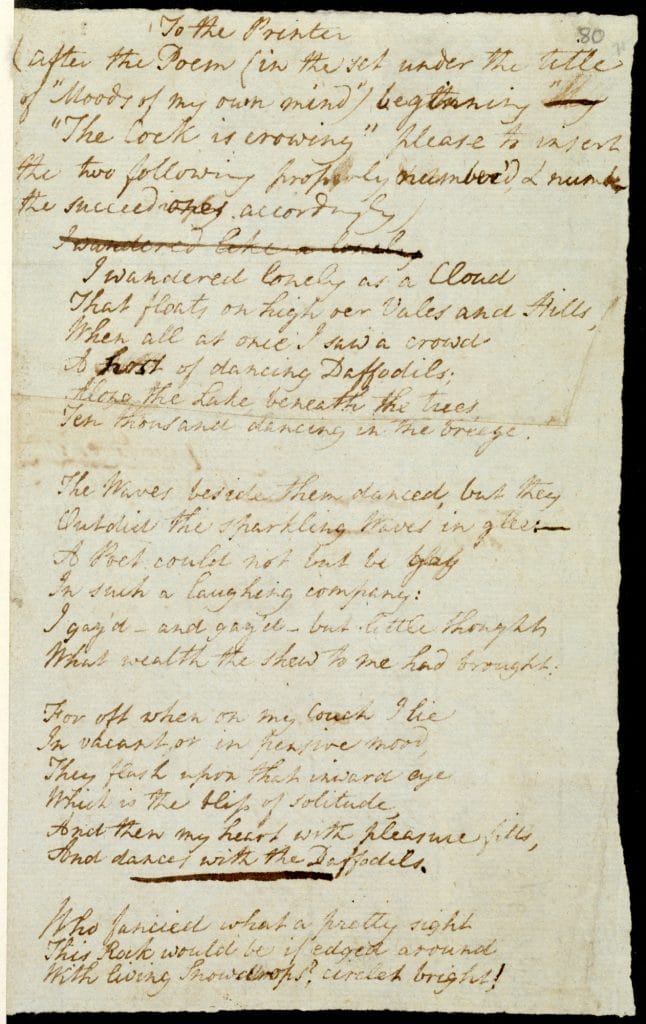 To the Printer
80
(after the Poem (in the set under the title
of "Moods of my own mind") beginning
"The Cock is crowing" please to insert
the two following properly number'd & number
the succeeding ones accordingly)
I wandered like a lonely
I wandered lonely as a Cloud
That floats on high oer Vales and Hills,
When all at once I saw a crowd
A host of dancing Daffodils;
Along the Lake, beneath the trees,
Ten thousand dancing in the breeze.
The Waves beside them danced, but they
Outdid the sparkling Waves in glee:—
A Poet could not but be gay
In such a laughing company:
I gaz'd – and gaz'd – but little thought
What wealth the shew to me had brought:
For oft when on my Couch I lie
In vacant, or in pensive mood,
They flash upon that inward eye
Which is the bliss of solitude,
And then my heart with pleasure fills,
And dances with the Daffodils.
Who fancied what a pretty sight
This Rock would be if edged around
With living Snowdrops? circlet bright!